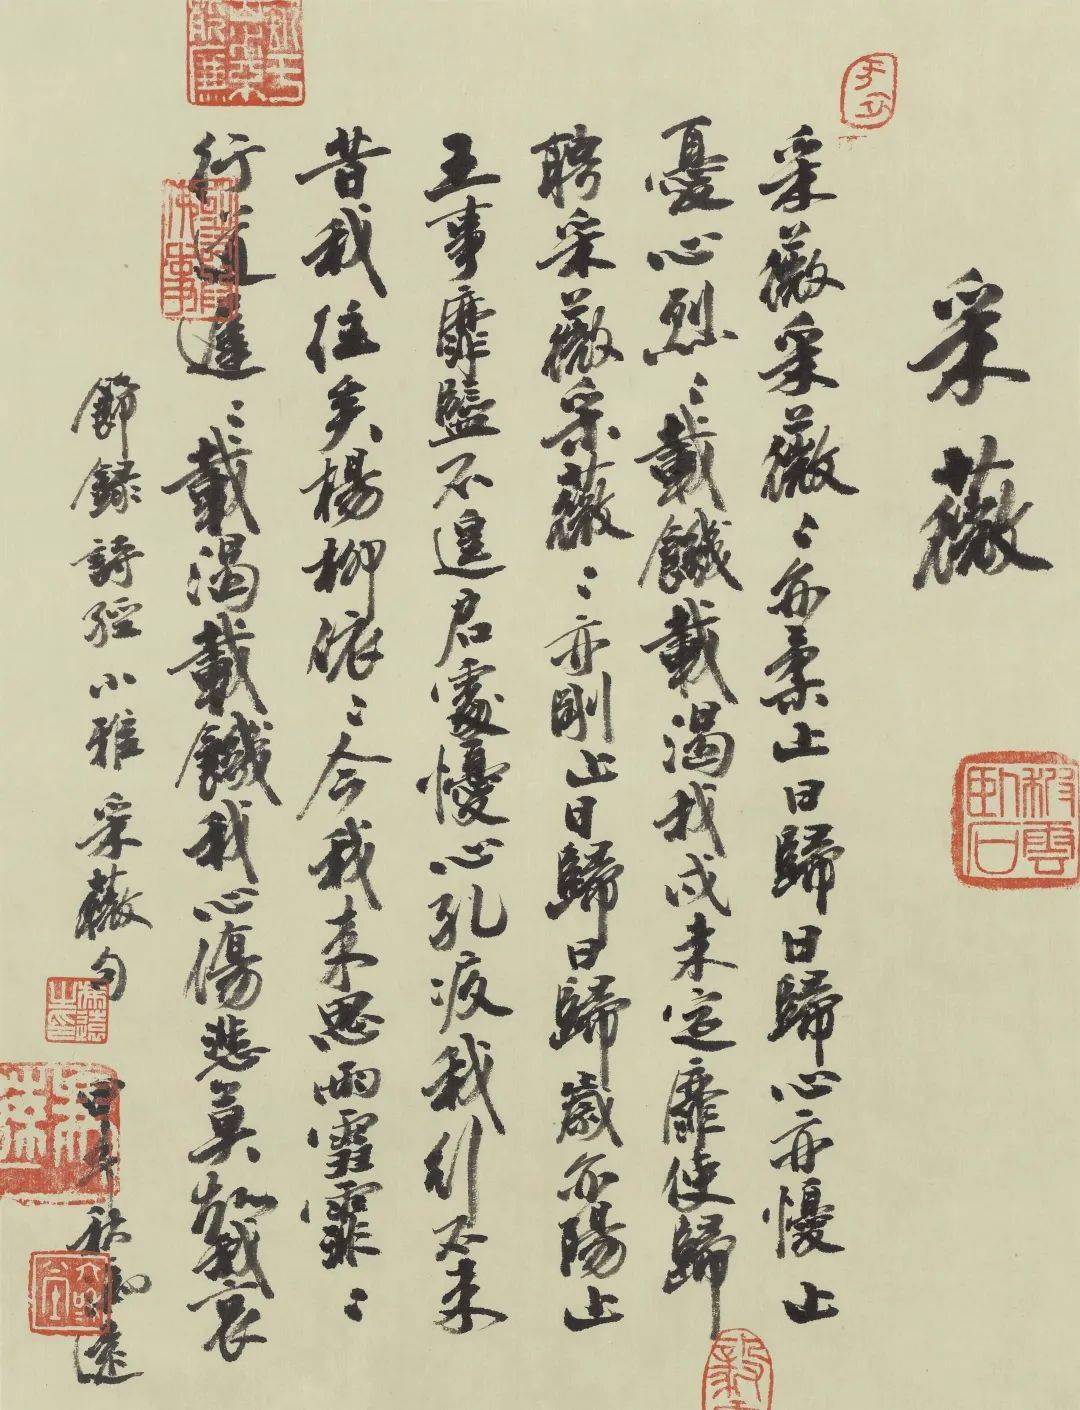 采薇
采薇采薇〻亦柔止曰歸曰歸心亦憂止
憂心烈〻載饑載渴我戍未定靡使歸
聘采薇采薇〻亦剛止曰歸曰歸歲亦陽止
王事靡盬不遑启處憂心孔疚我行不來
昔我往矣楊柳依〻今我來思雨雪霏〻
行道遲〻載渴載饑我心傷悲莫知我哀
節錄詩經小雅采薇句
甲午秋 遠